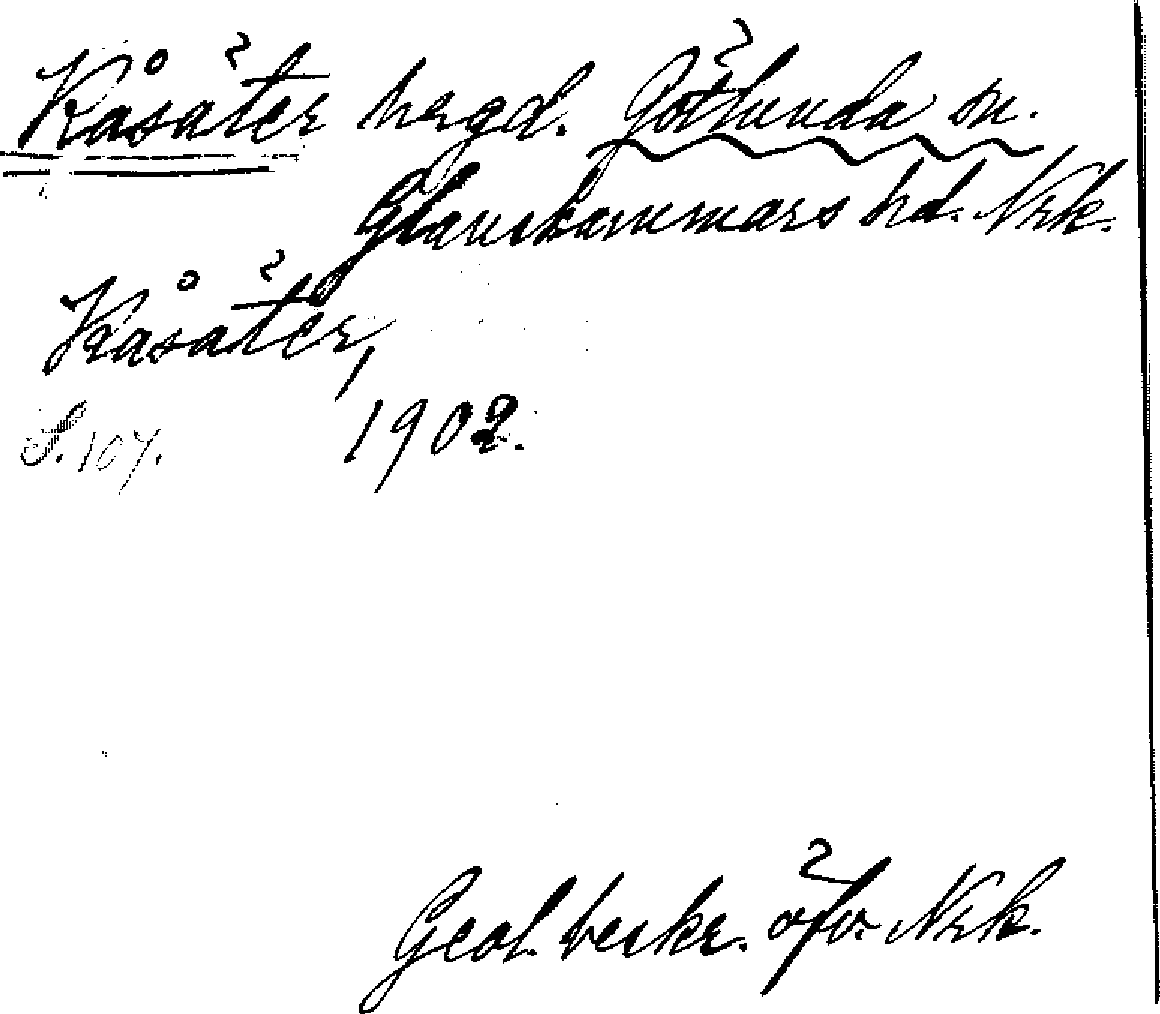 Kåsäter hrgd. Götlunda sn.
Glanshammars hd. Nrk.
Kåsäter,
S. 107. 1902.
Geol. beskr. öfv. Nrk.